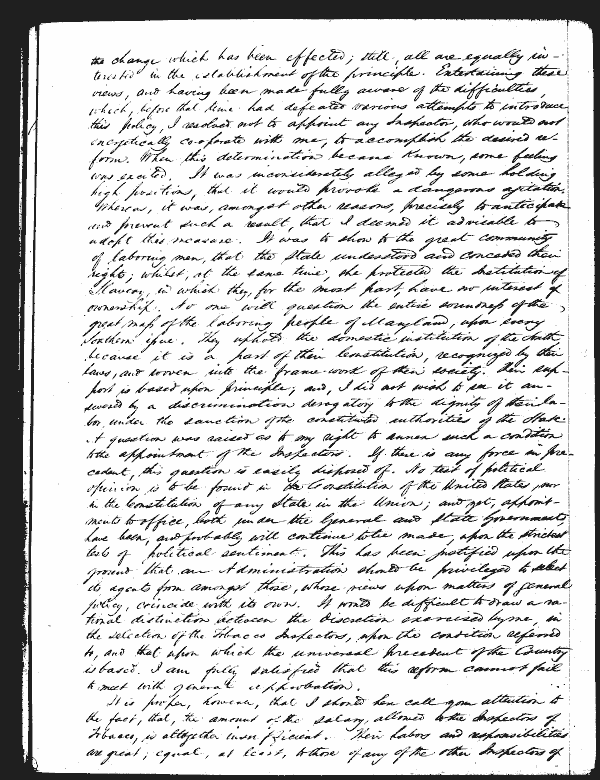 the change which has been effected; still, all are equally in-
terested in the establishment of the principle. Entertaining these
views, and having been made fully aware of the difficulties,
which, before that time had defeated various attempts to introduce
this policy, I resolved not to appoint any Inspector, who would not
energetically co-operate with me, to accomplish the desired re-
form. When this determination became known, some feeling
was excited. It was inconsiderately alleged by some holding
high positions, that it would provoke a dangerous agitation.
Whereas, it was, amongst other reasons, precisely to anticipate
and prevent such a result, that I deemed it advisable to
adopt this measure. It was to show to the great community
of laboring men, that the State understood and conceded their
right; whilst, at the same time, she protected the Institution of
Slavery, in which they, for the most part, have no interest of
ownership. No one will question the entire soundness of the
great mass of the laboring people of Maryland, upon every
Southern issue. They uphold the domestic institution of the South,
because it is a part of their Constitution, recognized by their
laws, and woven into the frame-work of their society. Their sup-
port is based upon principle, and, I did not wish to see it an-
swered by a discrimination derogatory to the dignity of their la-
bor, under the sanction of the constituted authorities of the State.
A question was raised as to my right to annex such a condition
to the appointment of the Inspectors. If there is any force in pre-
cedent, this question is easily disposed of. No test of political
opinion is to be found in the Constitution of the United States, nor
in the Constitution of any State in the Union; and yet, appoint-
ments to office, both under the General and State Governments,
have been, and probably will continue to be made, upon the strictest
tests of political sentiment. This has been justified upon the
ground that an Administration should be privileged to select
its agents from amongst those, whose views upon matters of general
policy, coincide with its own. It would be difficult to draw a ra-
tional distinction between the discretion exercised by me, in
the selection of the Tobacco Inspectors, upon the condition referred
to, and that upon which the universal precedent of the Country
is based. I am fully satisfied that this reform cannot fail
to meet with general approbation.
It is proper, however, that I should here call your attention to
the fact, that, the amount of the salary, allowed to the Inspectors of
Tobacco, is altogether insufficient. Their labors and responsibilities
are great; equal, at least, to those of any of the other Inspectors of